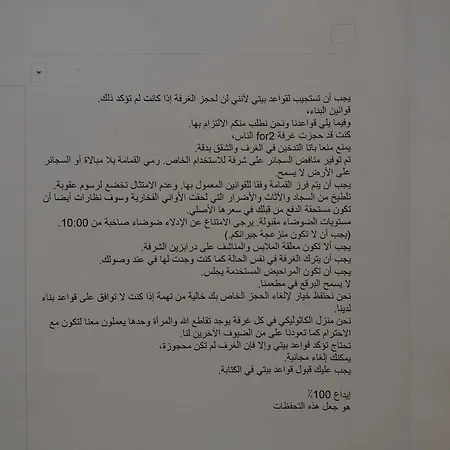 يجب أن تستجيب لقواعد بيتي لأنني لن لحجز الغرفة إذا كانت لم تؤكد ذلك.
قوانين البناء،
وفيما يلي قواعدنا ونحن نطلب منكم الالتزام بها.
كنت قد حجزت غرفة for2 الناس،
يمنع منعا باتا التدخين في الغرف والشقق بدقة.
تم توفير منافض السجائر على شرفة للاستخدام الخاص. رمي القمامة بلا مبالاة أو السجائر
على الأرض لا يسمح.
يجب أن يتم فرز القمامة وفقا للقوانين المعمول بها. وعدم الامتثال تخضع لرسوم عقوبة.
تلطيخ من السجاد والأثاث والأضرار التي لحقت الأواني الفخارية وسوف نظارات أيضا أن
تكون مستحقة الدفع من قبلك في سعرها الأصلي.
مستويات الضوضاء مقبولة. يرجى الامتناع عن الإدلاء ضوضاء صاخبة من 10:00.
(يجب أن لا تكون منزعجة جيرانكم.)
يجب ألا تكون معلقة الملابس والمناشف على درابزين الشرفة.
يجب أن يترك الغرفة في نفس الحالة كما كنت وجدت لها في عند وصولك.
يجب أن تكون المراحيض المستخدمة يجلس.
لا يسمح البرقع في مطعمنا.
نحن نحتفظ خيار لإلغاء الحجز الخاص بك خالية من تهمة إذا كنت لا توافق على قواعد بناء
لدينا.
نحن منزل الكاثوليكي في كل غرفة يوجد تقاطع الله والمرأة وحدها يعملون معنا لتكون مع
الاحترام كما تعودنا على من الضيوف الآخرين لنا.
تحتاج تؤكد قواعد بيتي وإلا فإن الغرف لم تكن محجوزة،
يمكنك إلغاء مجانية.
يجب عليك قبول قواعد بيتي في الكتابة.
إيداع 100٪
هو جعل هذه التحفظات